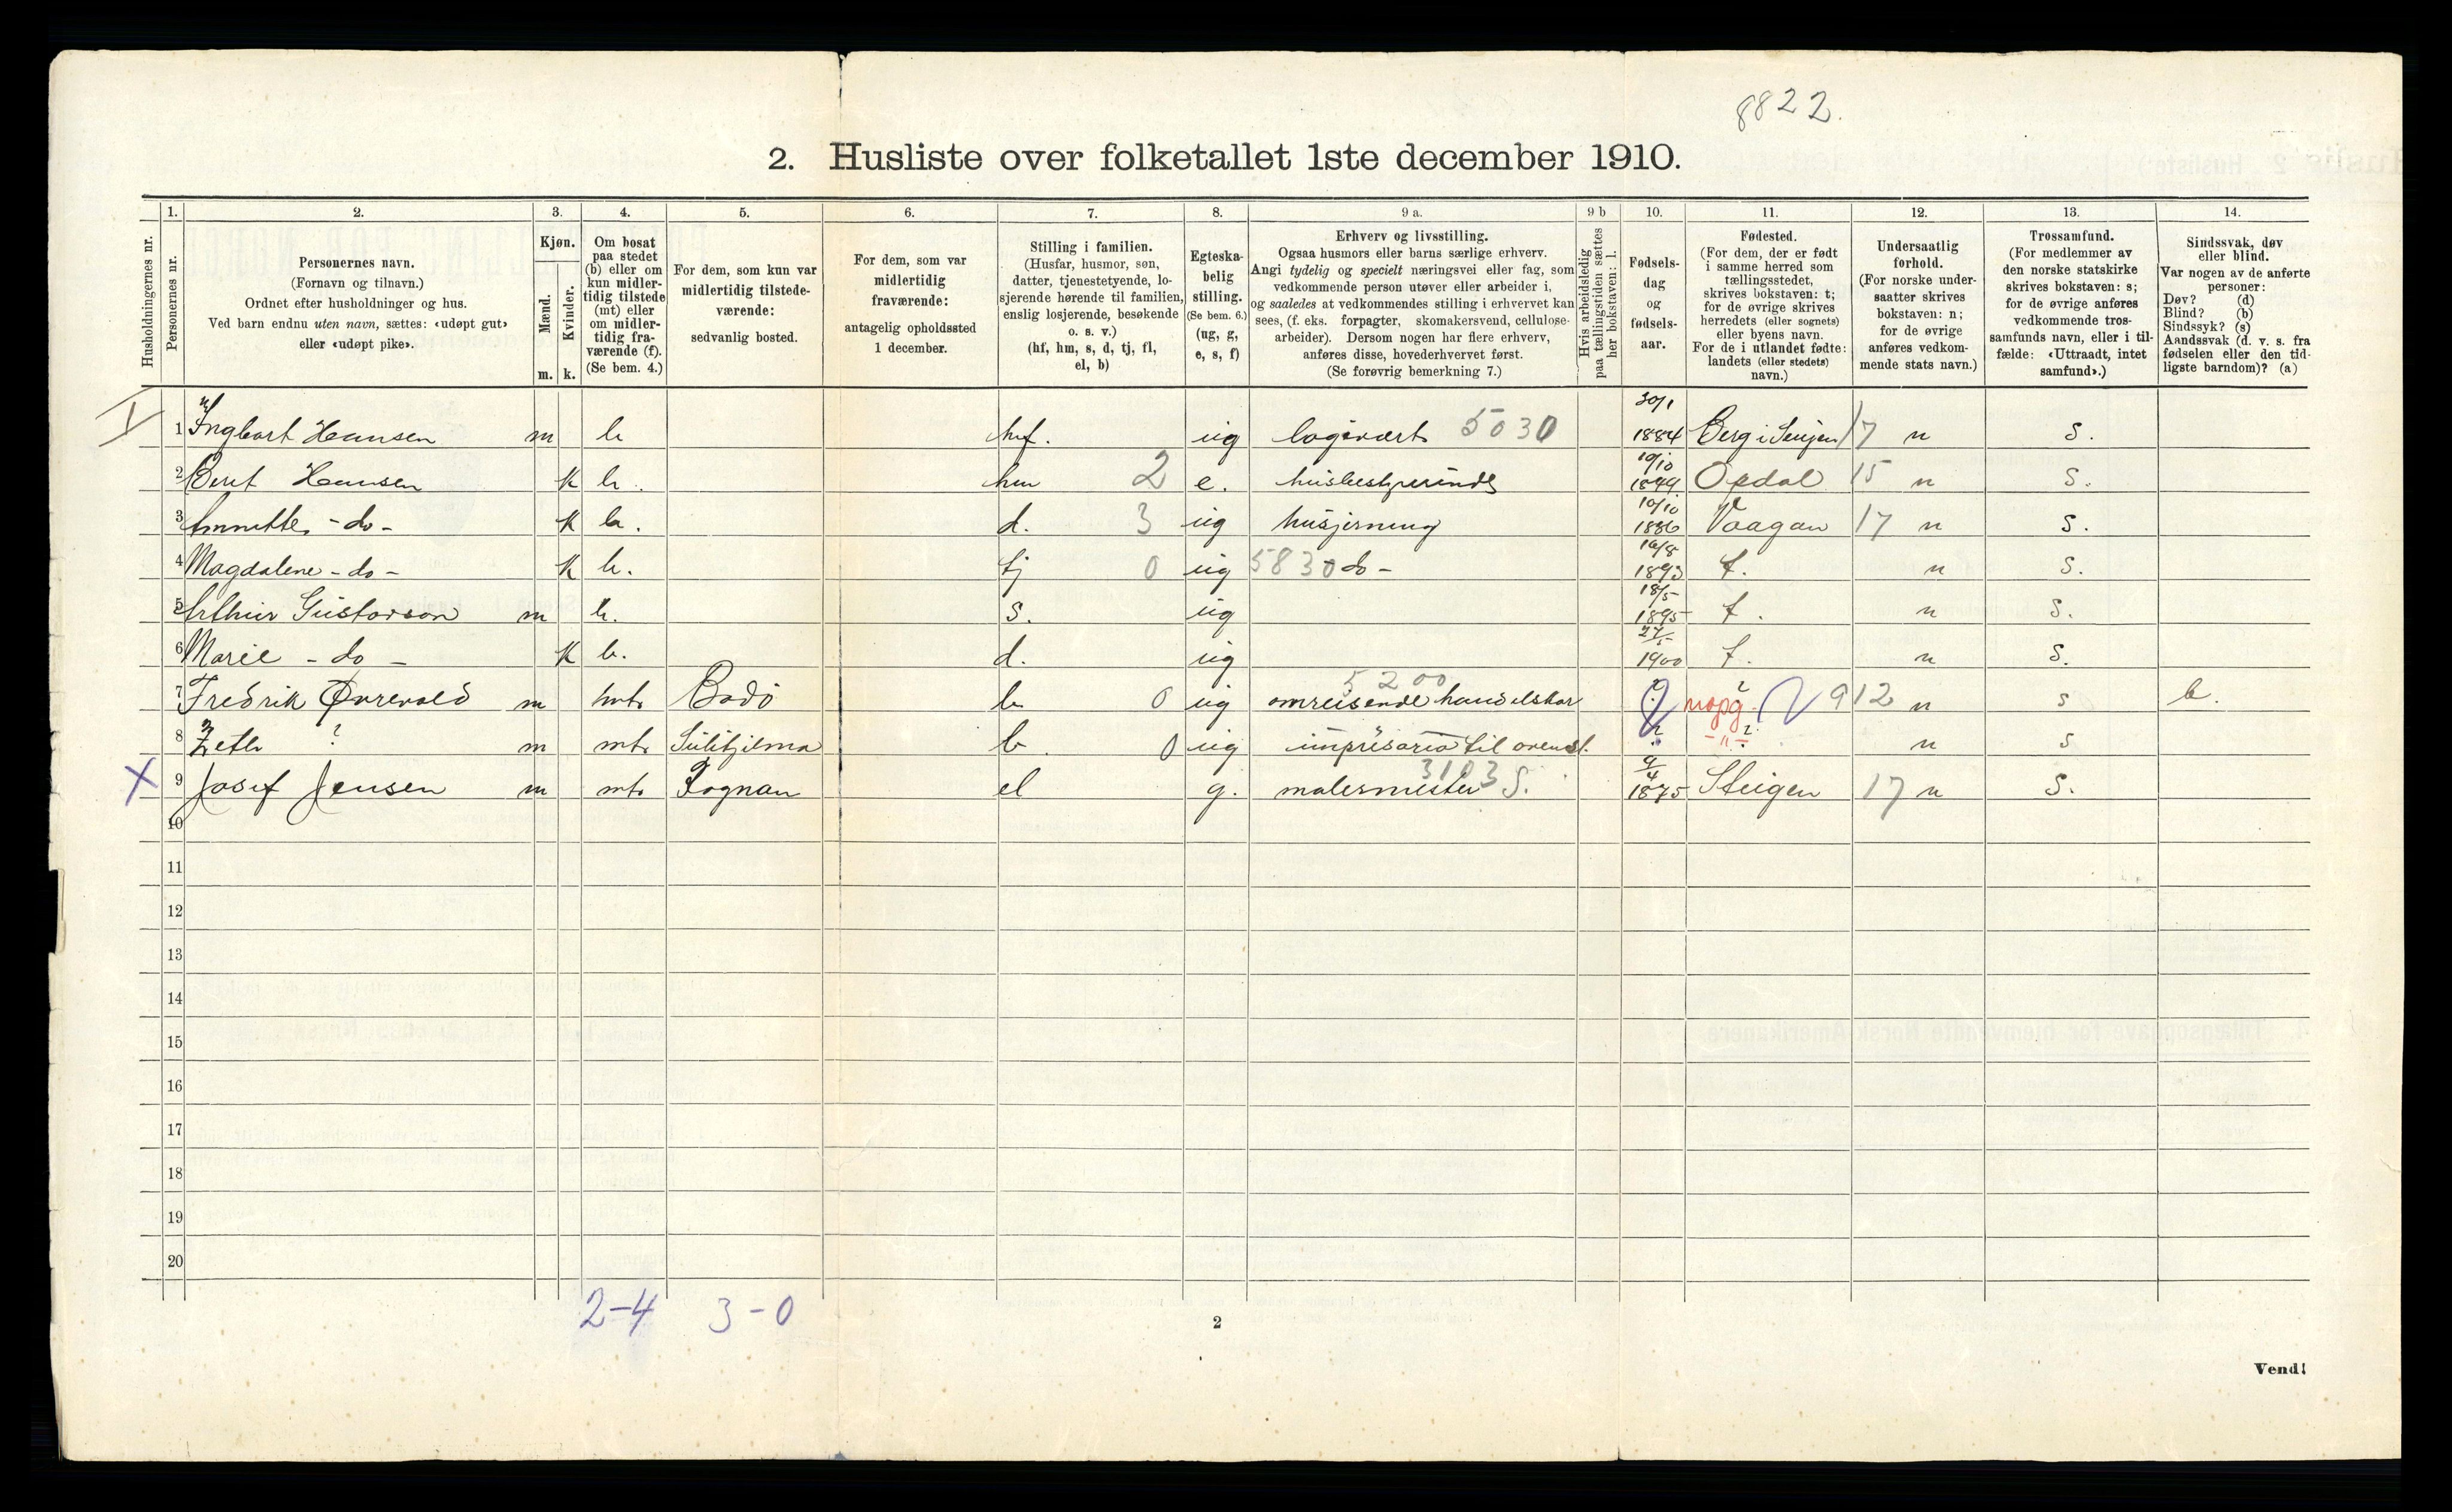 8822.
2. Husliste over folketallet 1ste december 1910.
Husholdningernes nr.
1. Personernes nr.
2. Personernes navn.
(Fornavn og tilnavn.)
Ordnet efter husholdninger og hus.
Ved barn endnu uten navn, sættes: «udøpt gut»
eller «udøpt pike».
3. Kjøn.
Mænd. Kvinder.
m. k.
4. Om bosat
paa stedet
(b) eller om
kun midler-
tidig tilstede
(mt) eller
om midler-
tidig fra-
værende (f).
(Se bem. 4.)
5. For dem, som kun var
midlertidig tilstede-
værende:
sedvanlig bosted.
6. For dem, som var
midlertidig
fraværende:
antagelig opholdssted
1 december.
7. Stilling i familien.
(Husfar, husmor, søn,
datter, tjenestetyende, lo-
sjerende hørende til familien,
enslig losjerende, besøkende
o. s. v.)
(hf, hm, s, d, tj, fl,
el, b)
8. Egteska-
belig
stilling.
(Se bem. 6.)
(ug, g,
e, s, f)
9 a. Erhverv og livsstilling.
Ogsaa husmors eller barns særlige erhverv.
Angi tydelig og specielt næringsvei eller fag, som
vedkommende person utøver eller arbeider i,
og saaledes at vedkommendes stilling i erhvervet kan
sees, (f. eks. forpagter, skomakersvend, cellulose-
arbeider). Dersom nogen har flere erhverv,
anføres disse, hovederhvervet først.
(Se forøvrig bemerkning 7.)
9 b Hvis arbeidsledig
paa tællingstiden sættes
her bokstaven: l.
10. Fødsels-
dag
og
fødsels-
aar.
11. Fødested.
(For dem, der er født
i samme herred som
tællingsstedet,
skrives bokstaven: t;
for de øvrige skrives
herredets (eller sognets)
eller byens navn.
For de i utlandet fødte:
landets (eller stedets)
navn.)
12. Undersaatlig
forhold.
(For norske under-
saatter skrives
bokstaven: n;
for de øvrige
anføres vedkom-
mende stats navn.)
13. Trossamfund.
(For medlemmer av
den norske statskirke
skrives bokstaven: s;
for de øvrige anføres
vedkommende tros-
samfunds navn, eller i til-
fælde: «Uttraadt, intet
samfund».)
14. Sindssvak, døv
eller blind.
Var nogen av de anførte
personer:
Døv? (d)
Blind? (b)
Sindssyk? (s)
Aandssvak (d. v. s. fra
fødselen eller den tid-
ligste barndom)? (a)
1 Ingbart Hansen m b hf. ug logivært 5030 30/1 1884 Berg i Senjen 17 n s.
2 Berit Hansen k b. hm 2 e. husbestyrerinde 19/10 1849 Opdal 15 n s.
3 Annette - do - k b. d. 3 ug husgjerning 10/10 1886 Vaagan 17 n s.
4 Magdalene - do - k b. tj 0 ug 5830 do - 16/8 1893 t. n s.
5 Arthur Gustavson m b. s. ug 18/5 1895 t. n s.
6 Marie - do - k b. d. ug 27/5 1900 t. n s.
7 Fredrik m mt Bodö b 0 ug 5200 omreisende handelskar ? uopg. ? 912 n s b.
8 Zeth ? m mt Sulitjelma b. 0 ug impresario til ovenst. ? -"- ? n s
9 Josef Jensen m mt Fognan el g. malermester 3103 S. 9/4 1875 Steigen 17 n s.
10
11
12
13
14
15
16
17
18
19
20
2-4 3-0
2
Vend!